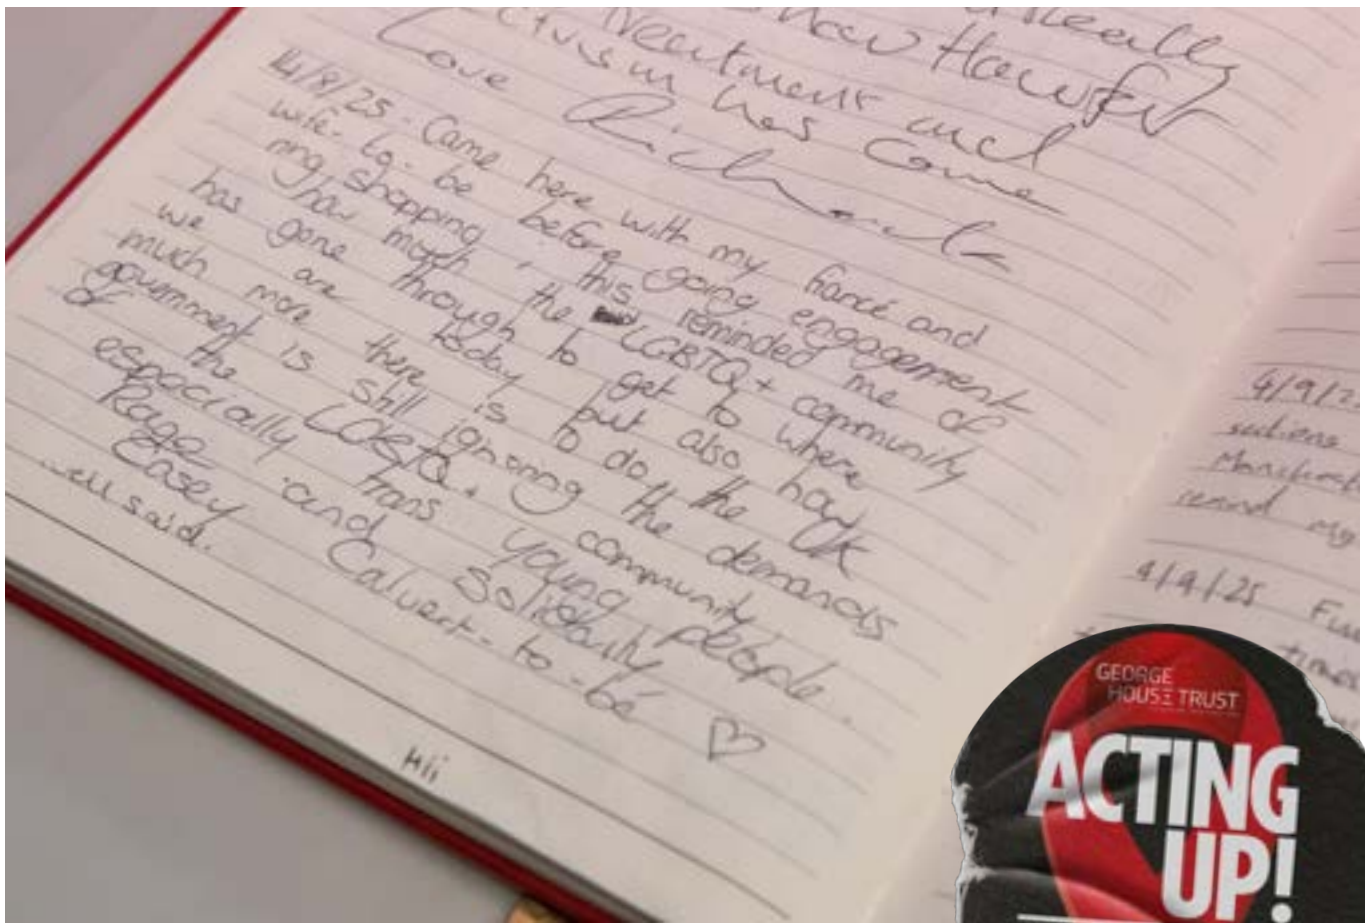 how
Treatment and
has come
Love Richard
14/8/25 - Came here with my fiancé and
wife-to-be before going engagement
ring shopping, this reminded me of
how much the LGBTQ+ community
has gone through to get to where
we are today but also how
much more there is to do, the UK
government is still ignoring the demands
of the LGBTQ+ community
especially trans young people.
Rage and Solidarity
Casey Calvert-to-be ♡
...well said.
Hii
4/9/25
sections
remind my
4/9/25
times
GEORGE
HOUSE TRUST
ACTING
UP!